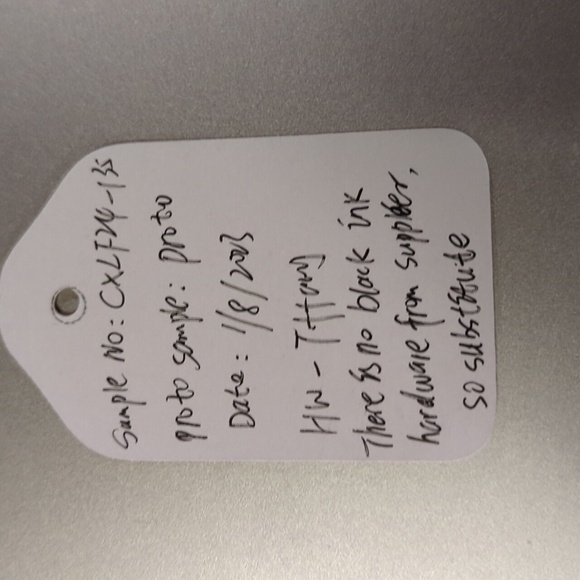 Sample No: CXLF24-135
proto sample: proto
Date: 1/8/2023
HW - THany
There is no black ink
hardware from supplier,
so substitute